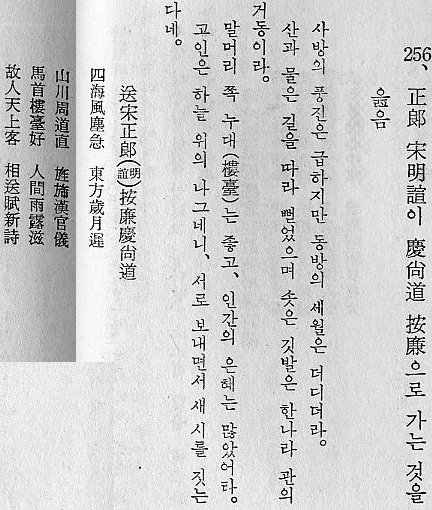 256、 正郎 宋明誼이 慶尙道 按廉으로 가는 것을
읊음
사방의 풍진은 급하지만 동방의 세월은 더디더라.
산과 물은 길을 따라 뻗었으며 솟은 깃발은 한나라 관의
거동이라.
말머리 쪽 누대(樓臺)는 좋고、인간의 은혜는 많았어라.
고인은 하늘 위의 나그네니、서로 보내면서 새 시를 짓는
다네.
送宋正郎(明誼)按廉慶尙道
四海風塵急 東方歲月遲
山川周道直 旌旄漢官儀
馬首樓臺好 人間雨露滋
故人天上客 相送賦新詩